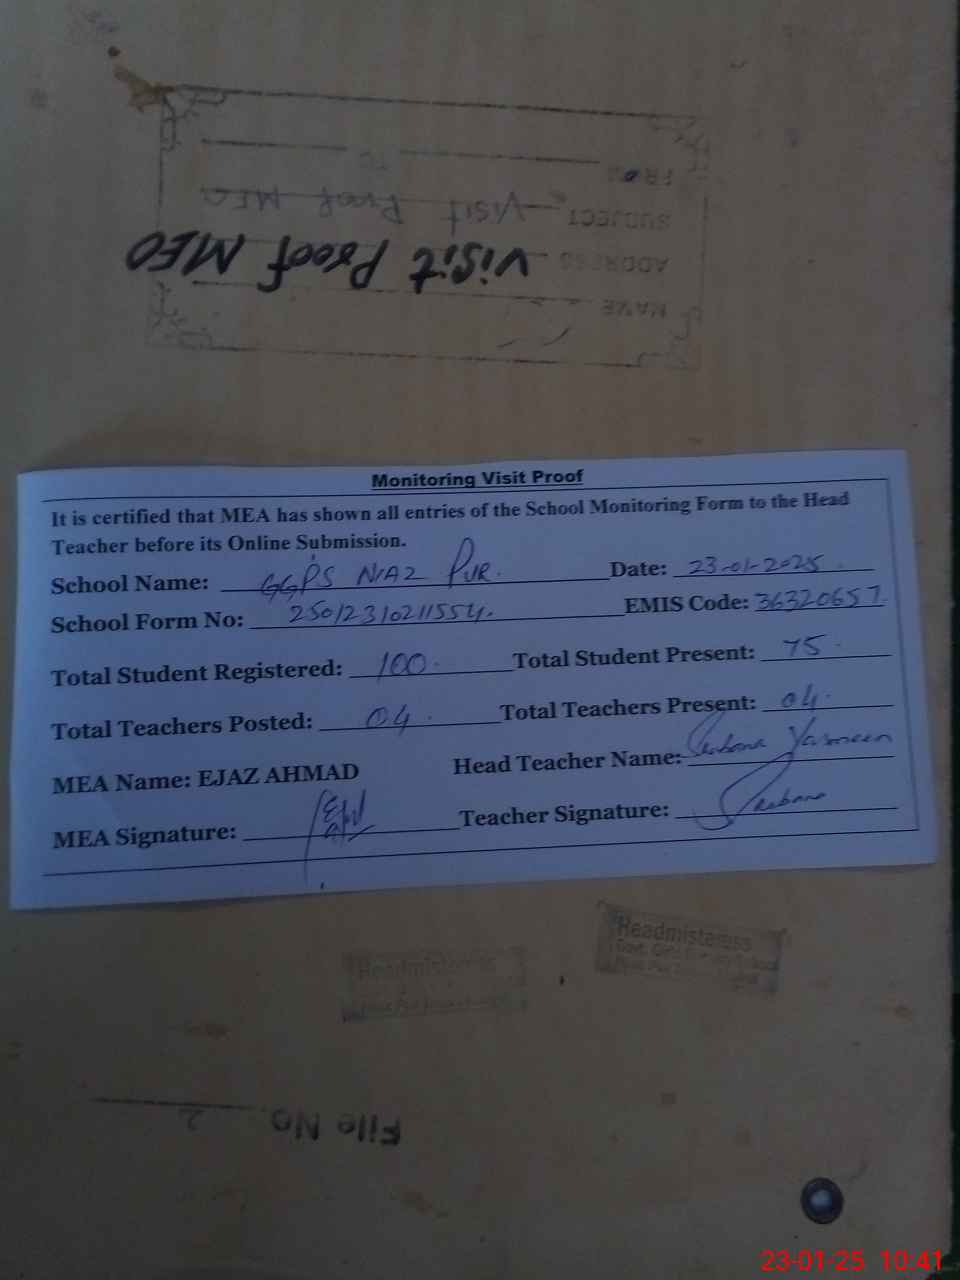 FROM TO
SUBJECT Visit Proof MEA
ADDRESS Visit Proof MEO
NAME
Monitoring Visit Proof
It is certified that MEA has shown all entries of the School Monitoring Form to the Head
Teacher before its Online Submission.
School Name: GGPS NIAZ PUR. Date: 23-01-2025
School Form No: 25012310211554. EMIS Code: 36320657
Total Student Registered: 100. Total Student Present: 75.
Total Teachers Posted: 04. Total Teachers Present: 04.
MEA Name: EJAZ AHMAD Head Teacher Name: Yasmeen
MEA Signature: Teacher Signature:
Headmistress
Headmistress
Govt.
File No 2
23-01-25 10:41